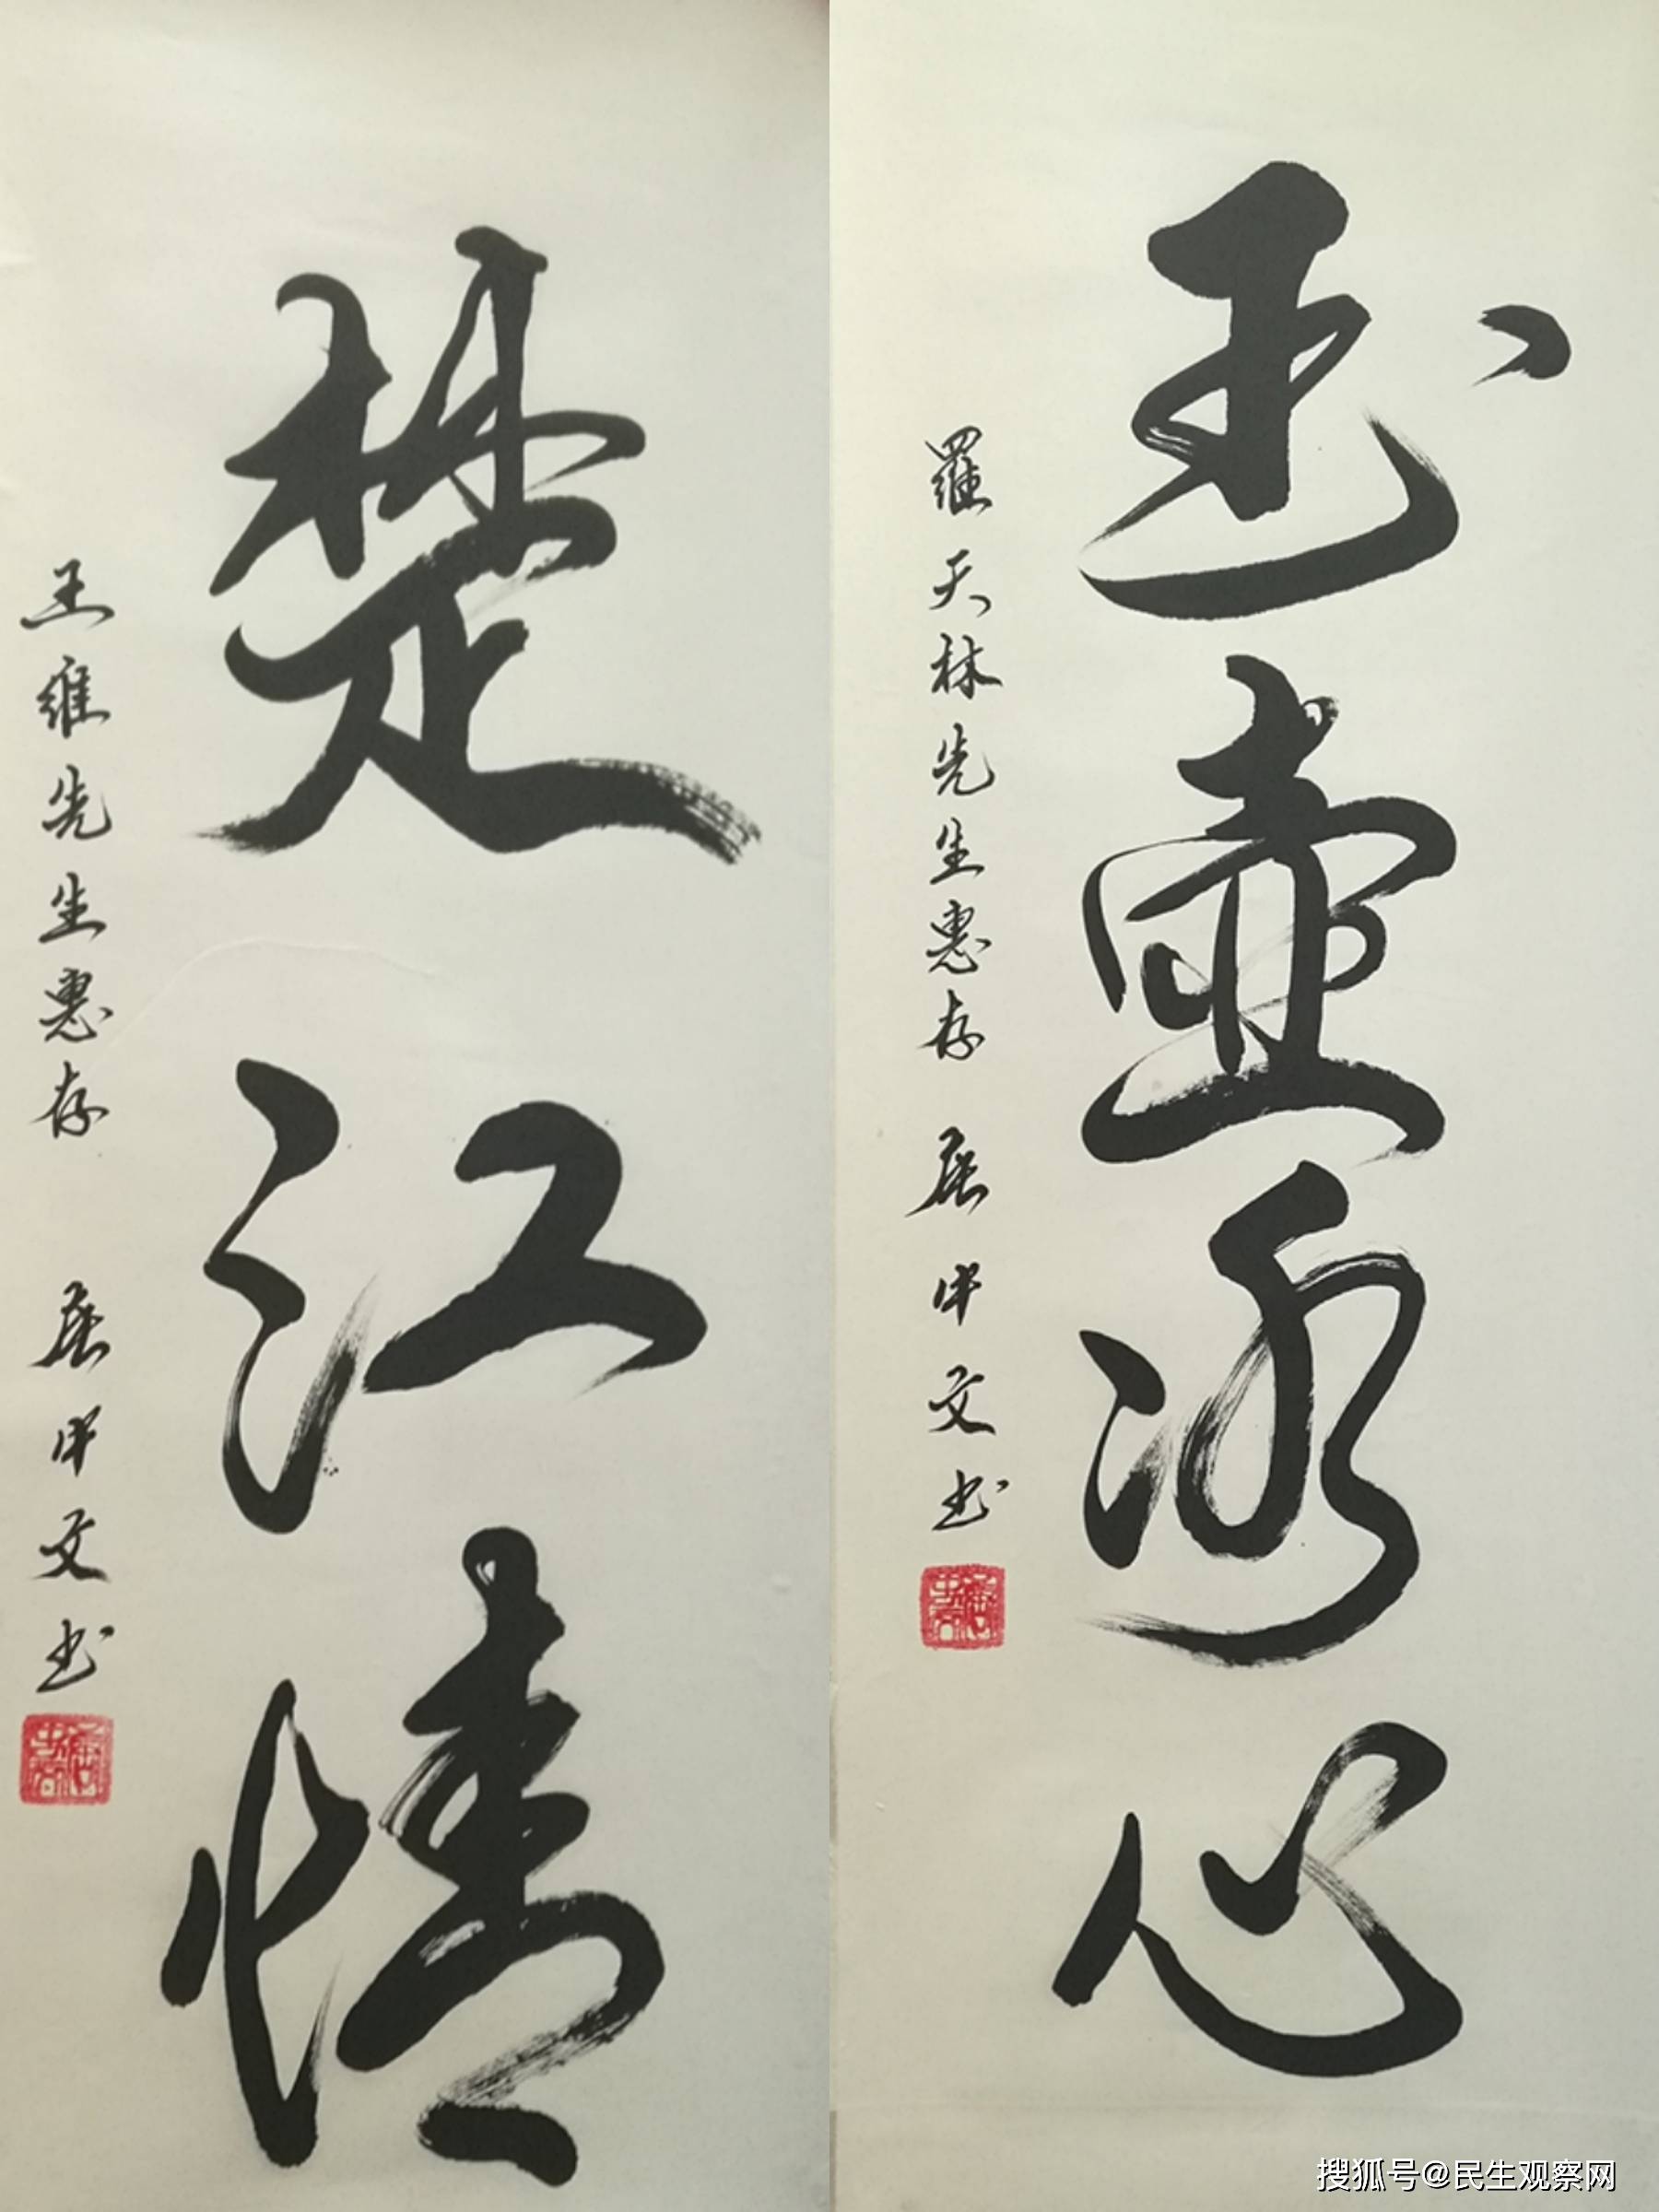 玉壺冰心
羅天林先生惠存 文书
楚江情
王維先生惠存 文书
搜狐号@民生观察网